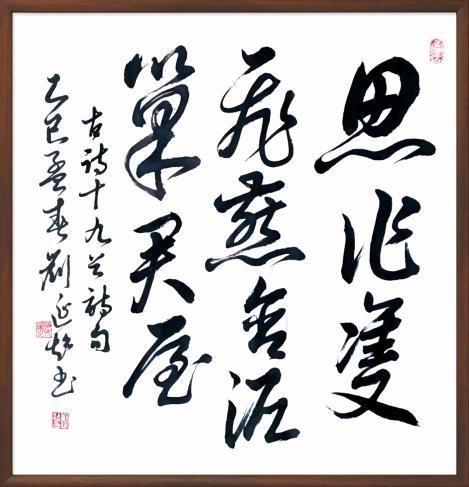 思作雙
飛燕含泥
巢君屋
古詩十九首詩句
乙巳孟春劉延書